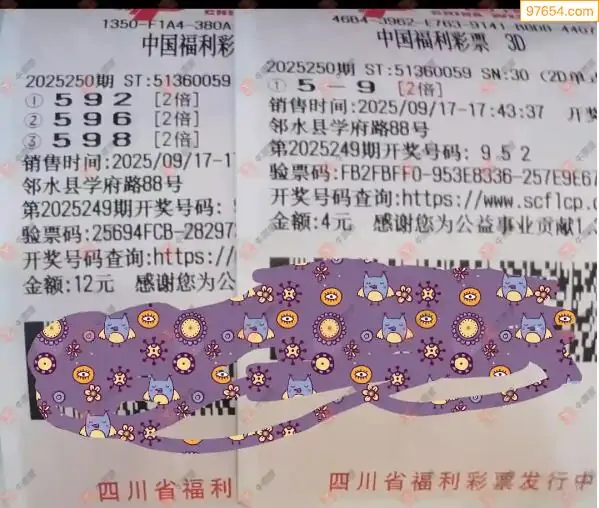 97654.com
1350-F1A4-380A
中国福利彩
2025250期 ST:51360059
① 5 9 2 [2倍]
② 5 9 6 [2倍]
③ 5 9 8 [2倍]
销售时间:2025/09/17-1
邻水县学府路88号
第2025249期开奖号码:
验票码:25694FCB-28297
开奖号码查询:https://
金额:12元 感谢您为公
四川省福利
中国福利彩票 3D
2025250期 ST:51360059 SN:30 (2D
① 5 － 9 [2倍]
销售时间:2025/09/17-17:43:37 开奖
邻水县学府路88号
第2025249期开奖号码: 9 5 2
验票码:FB2FBFF0-953E8336-257E9E67
开奖号码查询:https://www.scflcp.o
金额:4元 感谢您为公益事业贡献1.
四川省福利彩票发行中